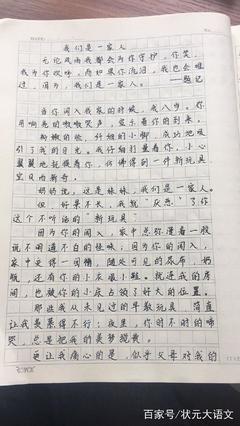 我们是一家人
无论风雨我都会为你守护，你笑，
我为你欢呼，而如果你流泪，我也会难
过，因为，我们是一家人。——题记
当你闯入我家的时候，我八岁。你
用响亮的啼哭声，宣示着你的到来。
粉嫩的脸，纤细的小脚，成功地吸
引了我的目光。我仔细打量着你，小心
翼翼地抚摸着你，仿佛得到一件新玩具
宝贝而新奇。
奶奶说，这是妹妹，我们是一家人。
但好景不长，我就“厌恶”了你
这个不听话的“新玩具”
因为你的闯入，家中总弥漫着一股
说不闻道不白的怪味；因为你的闯入，
家中变得一团糟，随处可见的尿布、奶
瓶，还有你的小衣服小鞋。就连我的房
间，也被你的小床占领了好大的位置。
那些我从未见过的早教玩具，简直
让我羡慕得不行；夜里，你时不时的啼
哭，总是把我的美梦搅散。
更让我痛心的是，似乎父母对我的
百家号/状元大语文